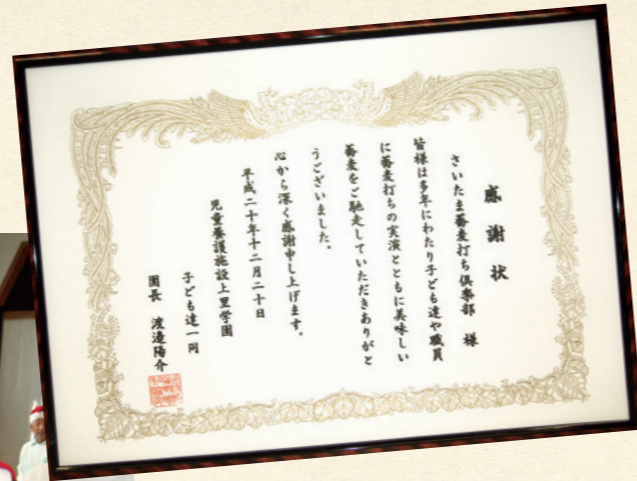 感謝状
さいたま蕎麦打ち倶楽部 様
皆様は多年にわたり子ども達や職員
に蕎麦打ちの実演とともに美味しい
蕎麦をご馳走していただきありがと
うございました。
心から深く感謝申し上げます。
平成二十年十二月二十日
児童養護施設上里学園
子ども達一同
園長 渡邉陽介